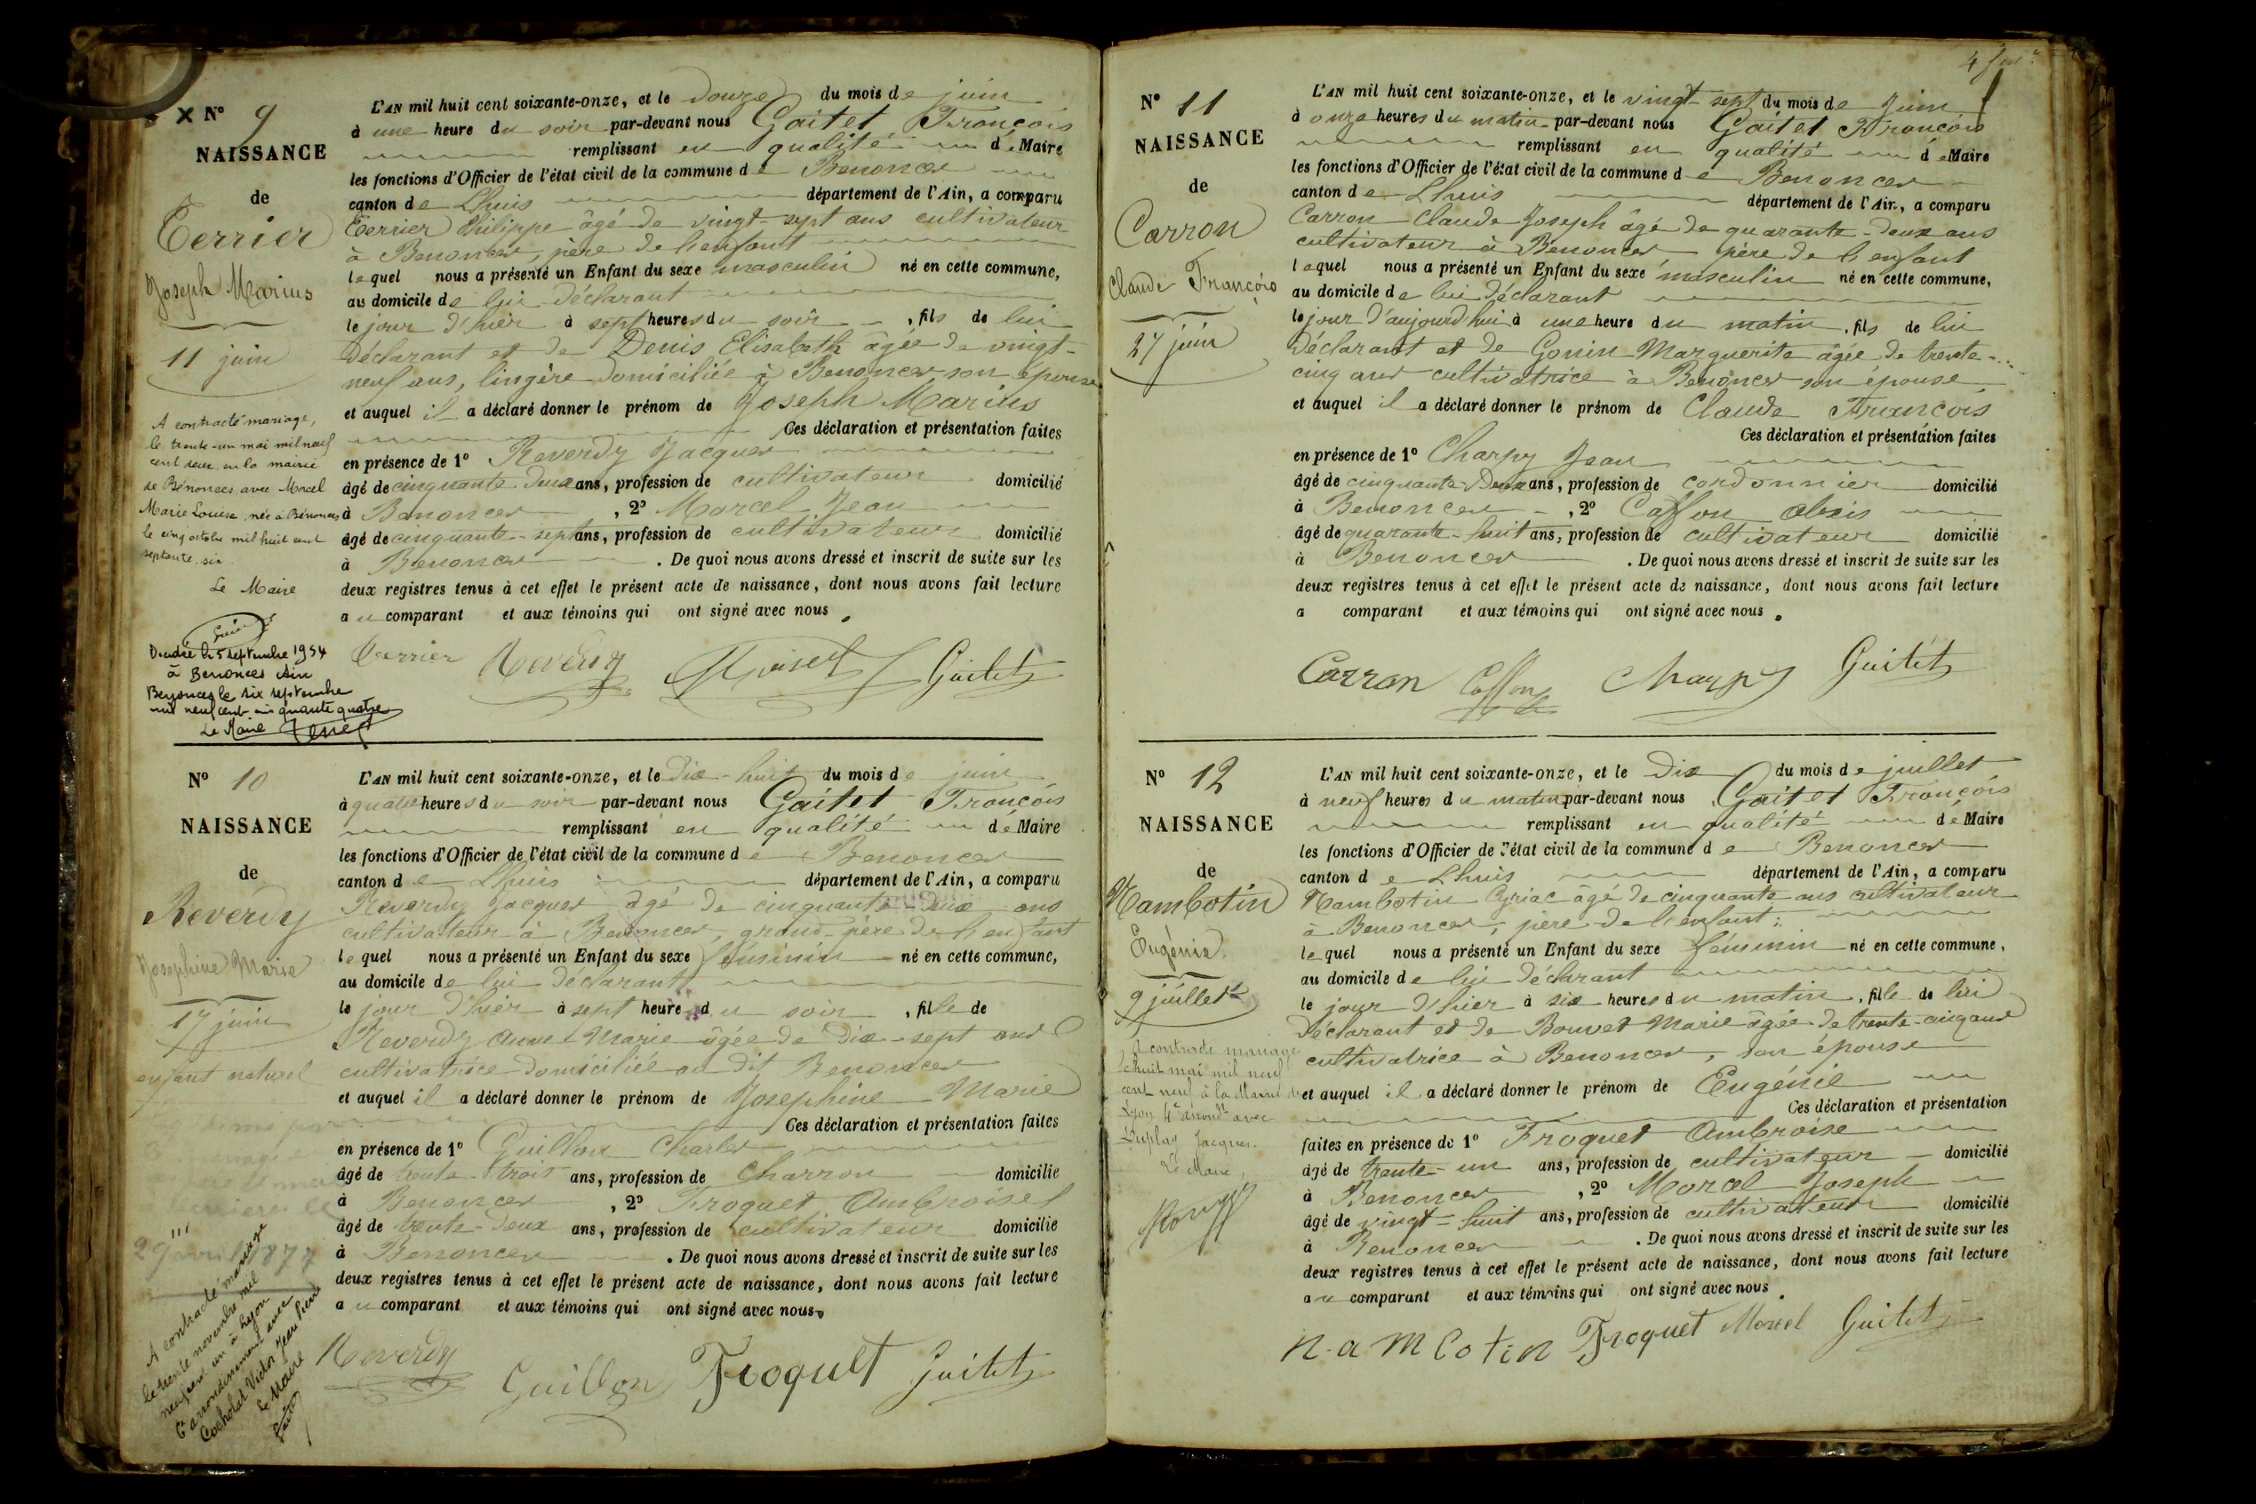 4 fet
N° 9
NAISSANCE
de
Terrier
Joseph Marius
11 juin
A contracté mariage,
le trente-un mai mil neuf
cent deux en la mairie
de Bénonces avec Marcel
Marie Louise née à Bénonces
le cinq octobre mil huit cent
septante six
Le Maire
Décédé le 5 septembre 1954
à Benonces Ain
Benonces le six septembre
mil neuf cent cinquante quatre
Le Maire
L'AN mil huit cent soixante-onze, et le douze du mois de juin
à une heure du soir par-devant nous Gaitet François
remplissant en qualité de Maire
les fonctions d'Officier de l'état civil de la commune de Benonces
canton de Lhuis département de l'Ain, a comparu
Terrier Philippe âgé de vingt-sept ans cultivateur
à Benonces, père de l'enfant
lequel nous a présenté un Enfant du sexe masculin né en cette commune,
au domicile de lui déclarant
le jour d'hier à sept heures du soir, fils de lui
déclarant et de Denis Elisabeth âgée de vingt-
neuf ans, lingère domiciliée à Benonces son épouse
et auquel il a déclaré donner le prénom de Joseph Marius
Ces déclaration et présentation faites
en présence de 1° Reverdy Jacques
âgé de cinquante deux ans, profession de cultivateur domicilié
à Benonces, 2° Marcel Jean
âgé de cinquante-sept ans, profession de cultivateur domicilié
à Benonces. De quoi nous avons dressé et inscrit de suite sur les
deux registres tenus à cet effet le présent acte de naissance, dont nous avons fait lecture
au comparant et aux témoins qui ont signé avec nous.
Terrier Reverdy Gaitet
N° 10
NAISSANCE
de
Reverdy
Josephine Marie
17 juin
enfant naturel
29 avril 1877
A contracté mariage
le trente novembre mil
neuf cent un à Lyon
6e arrondissement avec
Cocholat Victor Jean Pierre
Le Maire
L'AN mil huit cent soixante-onze, et le Dix-huit du mois de juin
à quatre heures du soir par-devant nous Gaitet François
remplissant en qualité de Maire
les fonctions d'Officier de l'état civil de la commune de Benonces
canton de Lhuis département de l'Ain, a comparu
Reverdy Jacques âgé de cinquante-deux ans
cultivateur à Benonces, grand-père de l'enfant
lequel nous a présenté un Enfant du sexe féminin né en cette commune,
au domicile de lui déclarant
le jour d'hier à sept heure du soir, fille de
Reverdy Anne Marie âgée de Dix-sept ans
cultivatrice domiciliée au dit Benonces
et auquel il a déclaré donner le prénom de Josephine Marie
Ces déclaration et présentation faites
en présence de 1° Guillon Charles
âgé de trente-trois ans, profession de Charron domicilié
à Benonces, 2° Froquet Ambroise
âgé de trente-deux ans, profession de cultivateur domicilié
à Benonces. De quoi nous avons dressé et inscrit de suite sur les
deux registres tenus à cet effet le présent acte de naissance, dont nous avons fait lecture
au comparant et aux témoins qui ont signé avec nous.
Reverdy Guillon Froquet Gaitet
N° 11
NAISSANCE
de
Carron
Claude François
27 juin
L'AN mil huit cent soixante-onze, et le vingt-sept du mois de Juin
à onze heures du matin par-devant nous Gaitet François
remplissant en qualité de Maire
les fonctions d'Officier de l'état civil de la commune de Benonces
canton de Lhuis département de l'Ain, a comparu
Carron Claude Joseph âgé de quarante-deux ans
cultivateur à Benonces père de l'enfant
lequel nous a présenté un Enfant du sexe masculin né en cette commune,
au domicile de lui déclarant
le jour d'aujourd'hui à une heure du matin, fils de lui
déclarant et de Gonin Marguerite âgée de trente-
cinq ans cultivatrice à Benonces son épouse,
et auquel il a déclaré donner le prénom de Claude François
Ces déclaration et présentation faites
en présence de 1° Charpy Jean
âgé de cinquante-Deux ans, profession de cordonnier domicilié
à Benonces, 2° Caffon Alexis
âgé de quarante-huit ans, profession de cultivateur domicilié
à Benonces. De quoi nous avons dressé et inscrit de suite sur les
deux registres tenus à cet effet le présent acte de naissance, dont nous avons fait lecture
a comparant et aux témoins qui ont signé avec nous.
Carron Caffon Charpy Gaitet
N° 12
NAISSANCE
de
Nambotin
Eugénie
9 juillet
A contracté mariage
le huit mai mil neuf
cent neuf à la Mairie de
Lyon 4e arrondt avec
Duplay Jacques.
Le Maire,
L'AN mil huit cent soixante-onze, et le Dix du mois de juillet
à neuf heures du matin par-devant nous Gaitet François
remplissant en qualité de Maire
les fonctions d'Officier de l'état civil de la commune de Benonces
canton de Lhuis département de l'Ain, a comparu
Nambotin Cyriac âgé de cinquante ans cultivateur
à Benonces, père de l'enfant
lequel nous a présenté un Enfant du sexe féminin né en cette commune,
au domicile de lui déclarant
le jour d'hier à six heures du matin, fille de lui
déclarant et de Bouvet Marie âgée de trente-cinq ans
cultivatrice à Benonces, son épouse
et auquel il a déclaré donner le prénom de Eugénie
Ces déclaration et présentation
faites en présence de 1° Froquet Ambroise
âgé de trente-un ans, profession de cultivateur domicilié
à Benonces, 2° Marcel Joseph
âgé de vingt-huit ans, profession de cultivateur domicilié
à Benonces. De quoi nous avons dressé et inscrit de suite sur les
deux registres tenus à cet effet le présent acte de naissance, dont nous avons fait lecture
au comparant et aux témoins qui ont signé avec nous.
Nambotin Froquet Marcel Gaitet